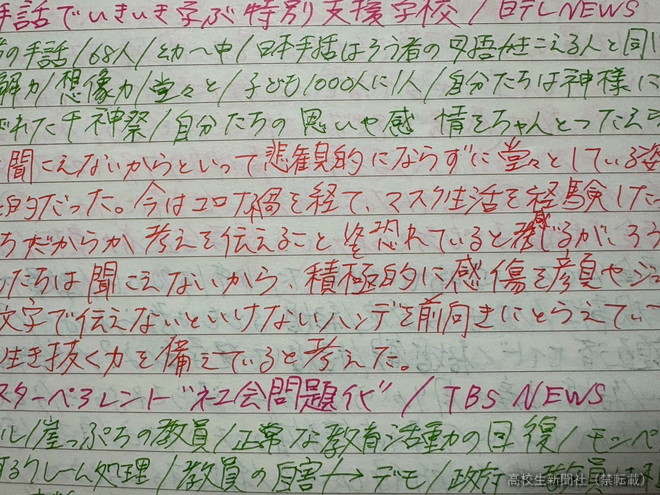 手話でいきいき学ぶ特別支援学校/日テレNEWS
の手話/68人/幼〜中/日本手話はろう者の母語がきこえる人と同じ
解力/想像力/堂々と/子ども1000人に1人/自分たちは神様に
ばれた千神祭/自分たちの思いや感情をちゃんとつたえ
聞こえないからといって悲観的にならずに堂々としている姿
的だった。今はコロナ禍を経て、マスク生活を経験した
ちだからか考えを伝えること 恐れていると感じるがろう
たちは聞こえないから、積極的に感情を顔や
文字で伝えないといけないハンデを前向きにとらえてい
生き抜く力を備えていると考えた。
スターペアレント"社会問題化"/TBS NEWS
ル/崖っぷちの教員/正常な教育活動の回復/モンペ
するクレーム処理/教員の自害→デモ/政府 教員
高校生新聞社(禁転載)